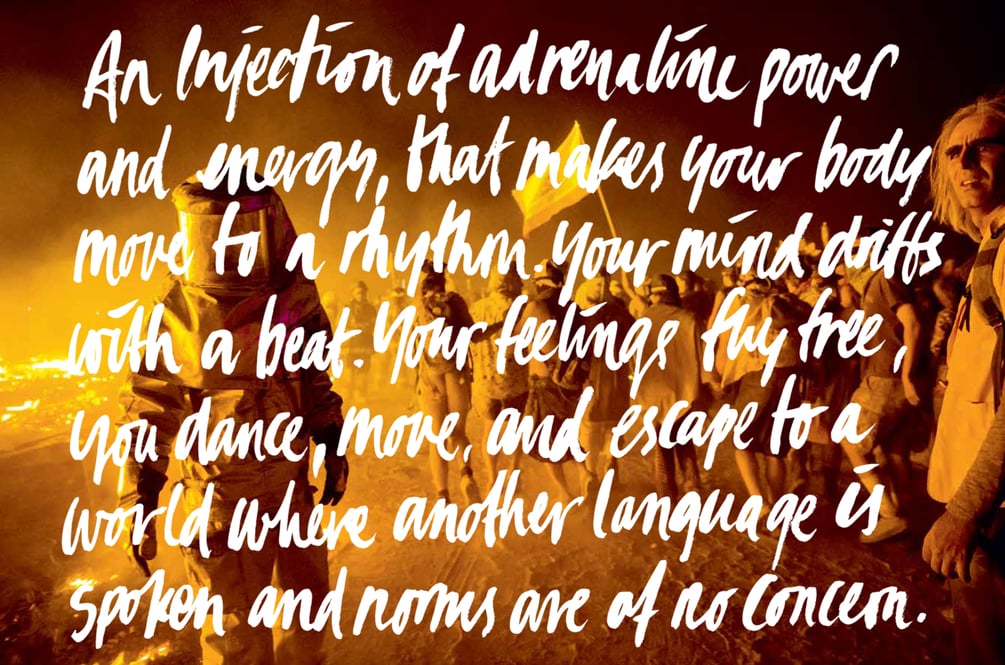 An Injection of adrenaline power
and energy, that makes your body
move to a rhythm. Your mind drifts
with a beat. Your feelings fly free,
you dance, move, and escape to a
world where another language is
spoken and norms are of no concern.